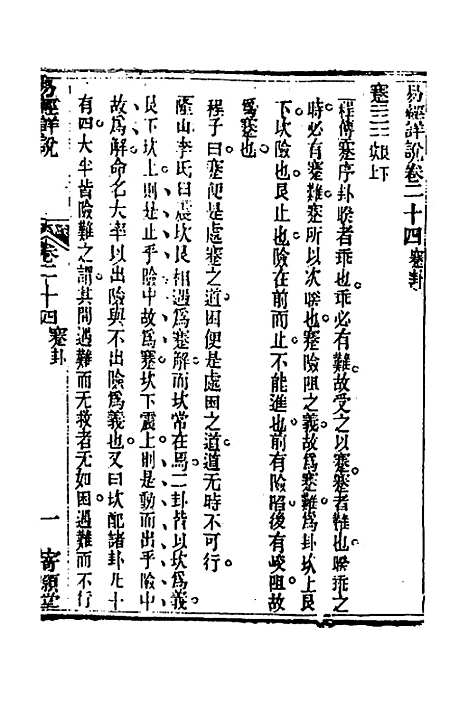 易經詳說卷二十四 蹇卦
蹇 艮下坎上
程傳蹇序卦睽者乖也乖必有難故受之以蹇蹇者難也睽乖之
時必有蹇難蹇所以次睽也蹇險阻之義故為蹇難為卦坎上艮
下坎險也艮止也險在前而止不能進也前有險陷後有峻阻故
為蹇也
程子曰蹇便是處蹇之道困便是處困之道道無時不可行
隆山李氏曰震坎艮相遇為蹇解而坎常在焉二卦皆以坎為義
艮下坎上則是止乎險中故為蹇坎下震上則是動而出乎險中
故為解命名大率以出險與不出險為義也又曰坎配諸卦凡十
有四大半皆險難之謂其間遇難而無救者無如困遇難而不行
易經詳說 卷二十四 蹇卦 一 寄願堂